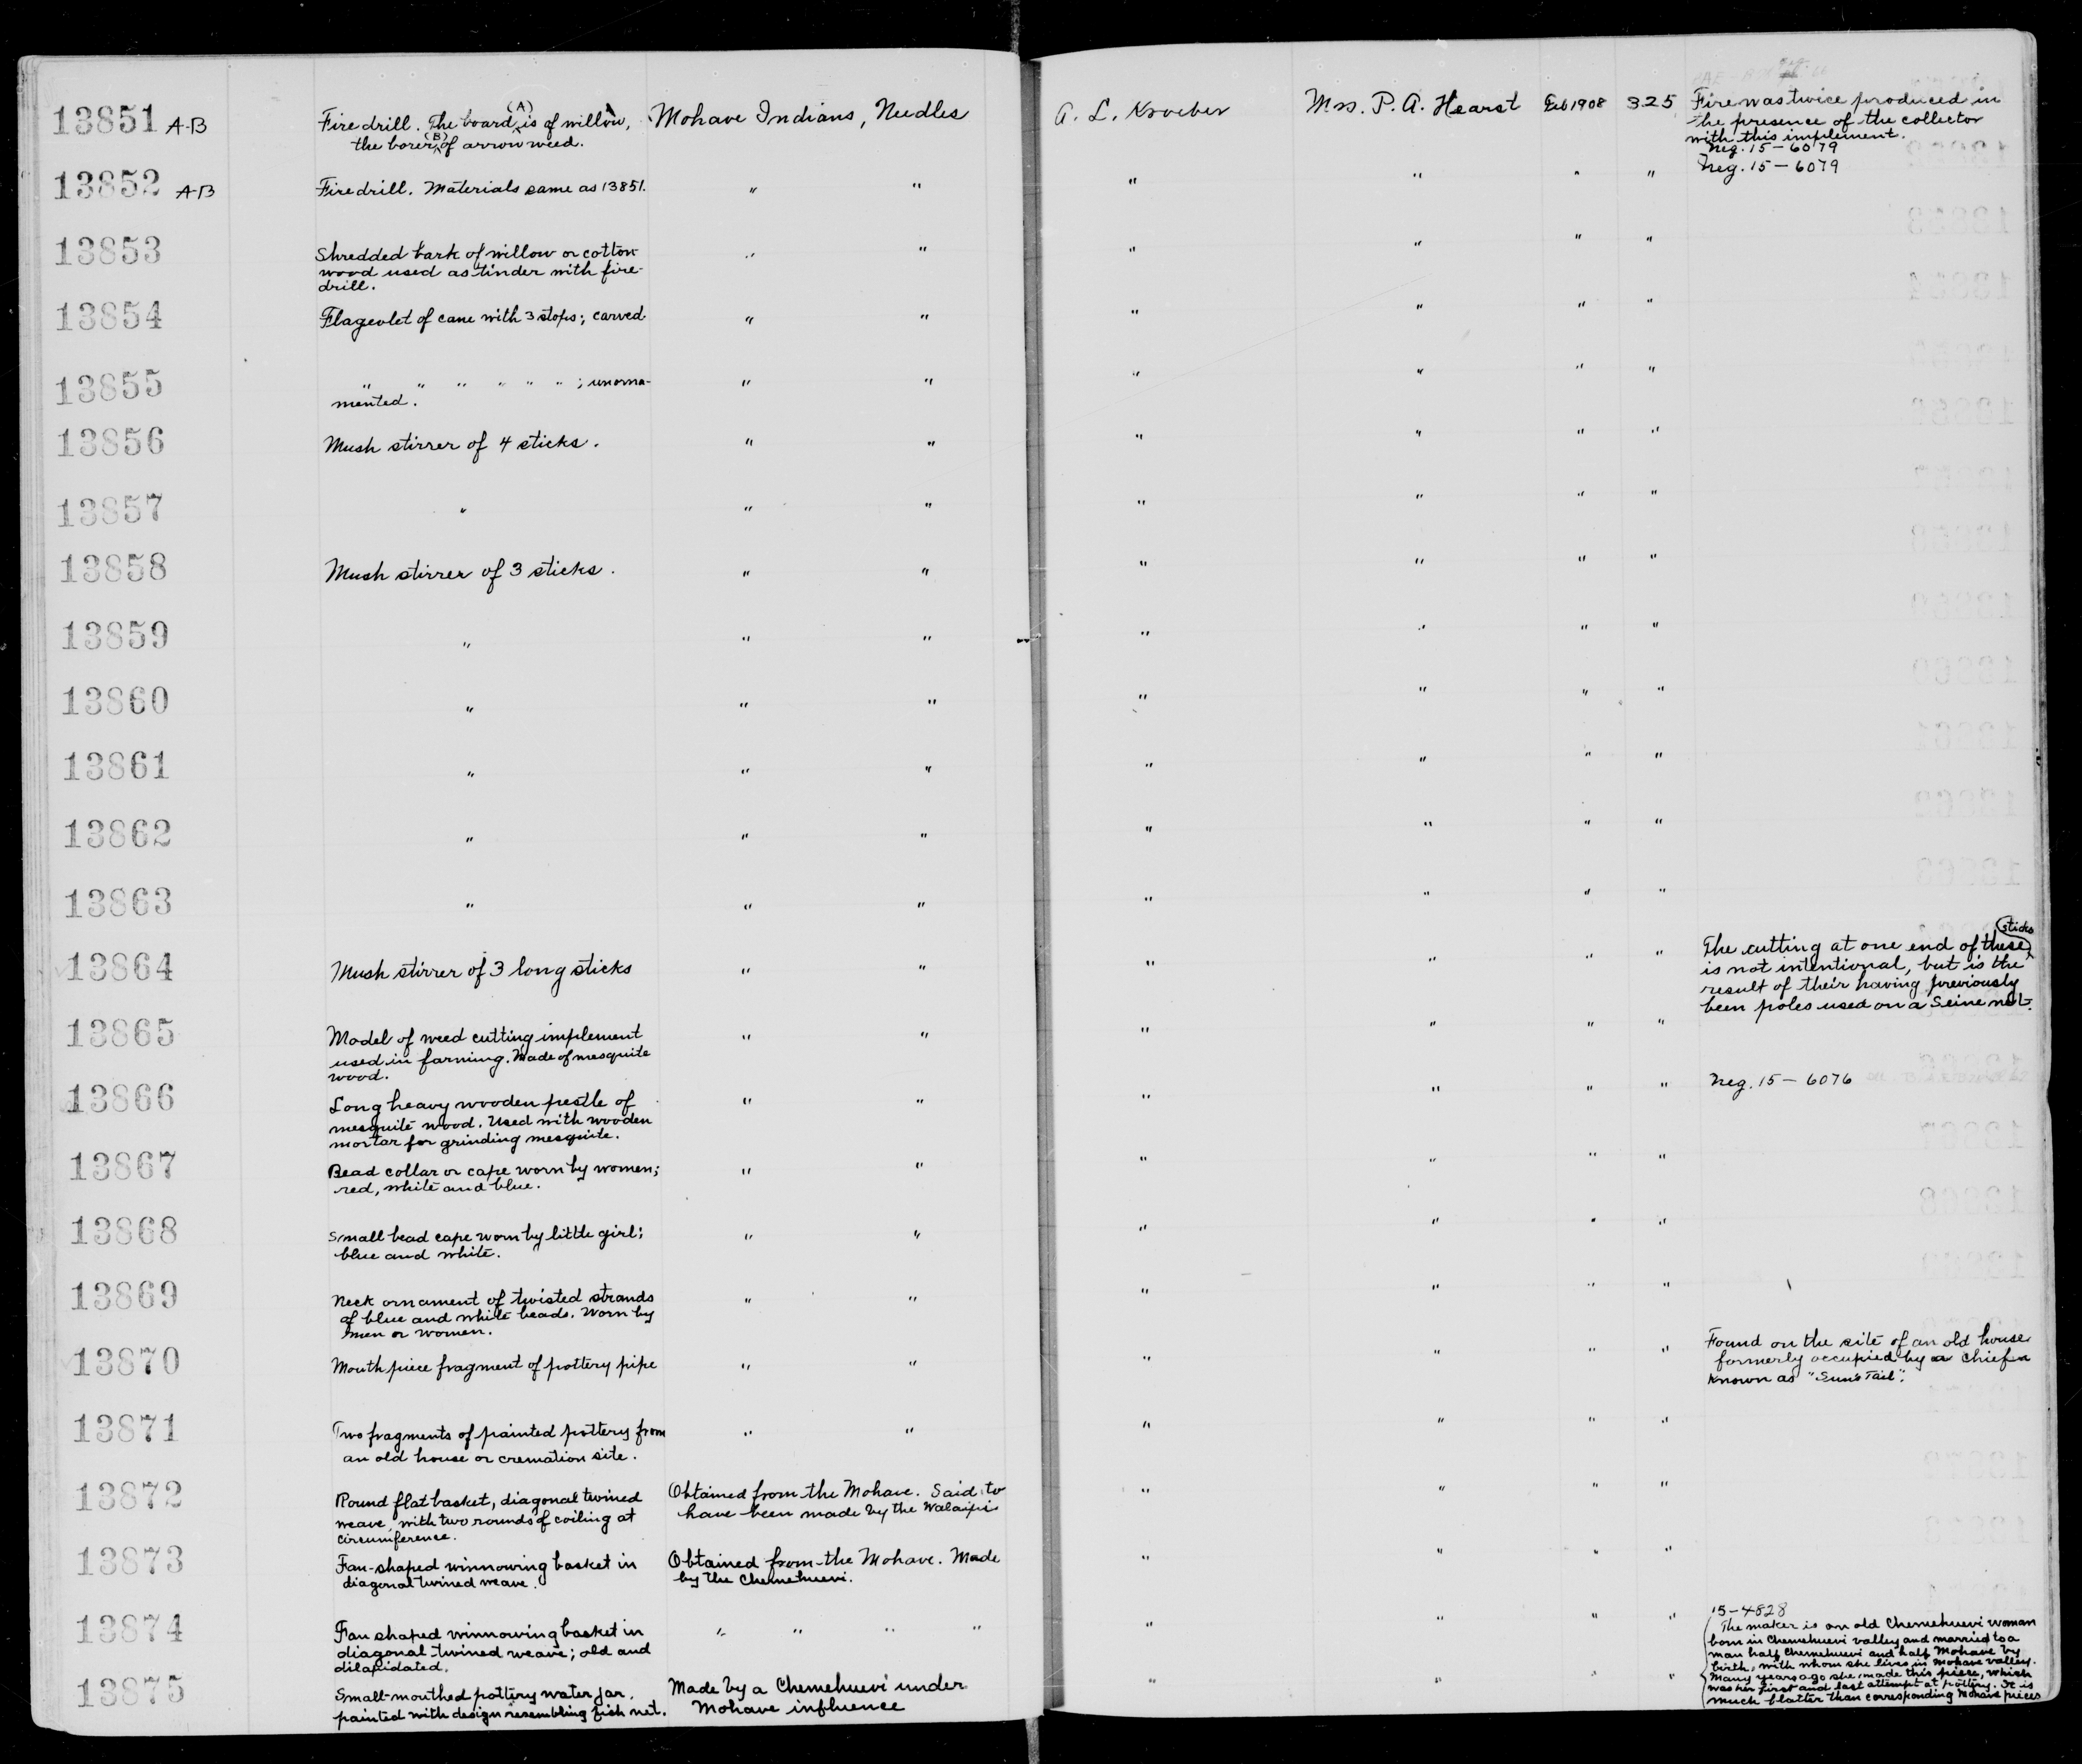 13851 A-B Fire drill. The board (A) is of willow, Mohave Indians, Needles A. L. Kroeber Mrs. P. A. Hearst Feb 1908 325 Fire was twice produced in
the borer (B) of arrow weed. the presence of the collector
with this implement.
Neg. 15-6079
13852 A-B Fire drill. Materials same as 13851. " " " " " " Neg. 15-6079
13853 Shredded bark of willow or cotton- " " " " " "
wood used as tinder with fire-
drill.
13854 Flageolet of cane with 3 stops; carved. " " " " " "
13855 " " " " " " ; unorna- " " " " " "
mented.
13856 Mush stirrer of 4 sticks. " " " " " "
13857 " " " " " " "
13858 Mush stirrer of 3 sticks. " " " " " "
13859 " " " " " " "
13860 " " " " " " "
13861 " " " " " " "
13862 " " " " " " "
13863 " " " " " " "
13864 Mush stirrer of 3 long sticks " " " " " " The cutting at one end of these sticks
is not intentional, but is the
result of their having previously
been poles used on a Seine net.
13865 Model of weed cutting implement " " " " " "
used in farming. Made of mesquite
wood.
13866 Long heavy wooden pestle of " " " " " " Neg. 15-6076
mesquite wood. Used with wooden
mortar for grinding mesquite.
13867 Bead collar or cape worn by women; " " " " " "
red, white and blue.
13868 Small bead cape worn by little girl; " " " " " "
blue and white.
13869 Neck ornament of twisted strands " " " " " "
of blue and white beads. Worn by
men or women.
13870 Mouth piece fragment of pottery pipe " " " " " " Found on the site of an old house
formerly occupied by a chief
known as "Sun's Tail".
13871 Two fragments of painted pottery from " " " " " "
an old house or cremation site.
13872 Round flat basket, diagonal twined Obtained from the Mohave. Said to " " " "
weave, with two rounds of coiling at have been made by the Walaipi
circumference.
13873 Fan-shaped winnowing basket in Obtained from the Mohave. Made " " " "
diagonal twined weave. by the Chemehuevi.
13874 Fan shaped winnowing basket in " " " " " " " "
diagonal-twined weave; old and
dilapidated.
13875 Small-mouthed pottery water jar, Made by a Chemehuevi under " " " "
painted with design resembling fish net. Mohave influence
15-4828
The maker is an old Chemehuevi woman
born in Chemehuevi valley and married to a
man half Chemehuevi and half Mohave by
birth, with whom she lives in Mohave valley.
Many years ago she made this piece, which
was her first and last attempt at pottery. It is
much flatter than corresponding Mohave pieces